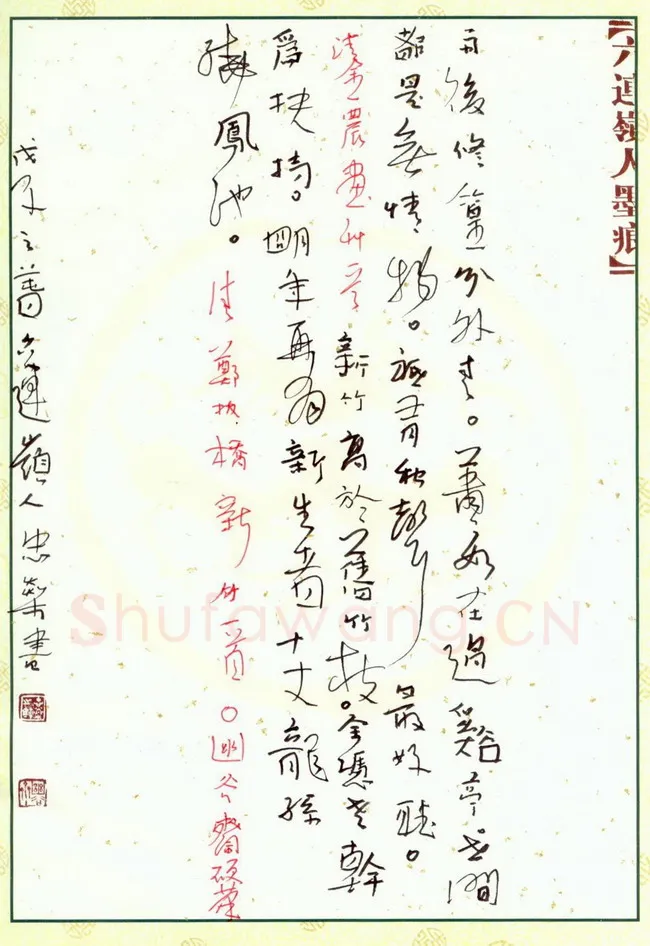 【六連嶺人墨痕】
雨後修篁分外青。蕭蕭如在過谿亭。世間
都是無情物。祇有秋聲最好聽。
清金農畫竹一首 新竹高於舊竹枝。全憑老幹
爲扶持。明年再有新生者十丈龍孫
繞鳳池。清鄭板橋新竹一首 〇幽谷齋硬筆
戊子之六連嶺人忠書
Shufawang.CN